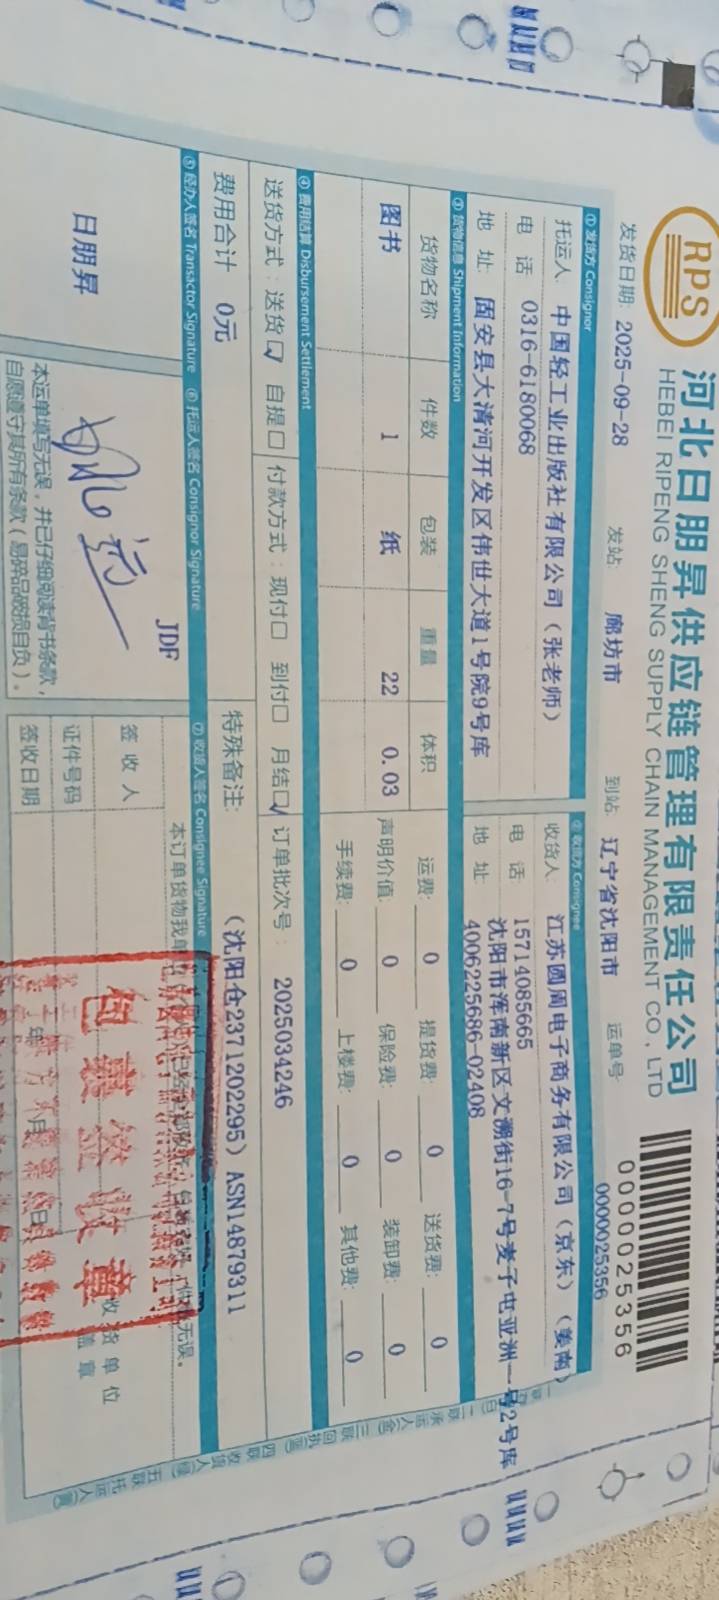 RPS
河北日朋昇供应链管理有限责任公司
HEBEI RIPENG SHENG SUPPLY CHAIN MANAGEMENT CO., LTD
0000025356
发货日期: 2025-09-28 发站: 廊坊市 到站: 辽宁省沈阳市 运单号: 0000025356
① 发货方 Consignor
托运人: 中国轻工业出版社有限公司（张老师）
电 话: 0316-6180068
地 址: 固安县大清河开发区伟世大道1号院9号库
② 收货方 Consignee
收货人: 江苏圆周电子商务有限公司（京东）（姜南）
电 话: 15714085665
地 址: 沈阳市浑南新区文溯街16-7号麦子屯亚洲一号2号库
4006225686-02408
③ 货物信息 Shipment Information
货物名称 件数 包装 重量 体积
图书 1 纸 22 0.03
运费: 0 提货费: 0 送货费: 0
声明价值: 0 保险费: 0 装卸费: 0
手续费: 0 上楼费: 0 其他费: 0
④ 费用结算 Disbursement Settlement
送货方式: 送货☑ 自提□ 付款方式: 现付□ 到付□ 月结☑ 订单批次号: 2025034246
费用合计 0元
特殊备注: （沈阳仓2371202295）ASN14879311
⑤ 经办人签名 Transactor Signature ⑥ 托运人签名 Consignor Signature ⑦ 收货人签名 Consignee Signature
日朋昇
JDF
本运单填写无误，并已仔细阅读背书条款，
自愿遵守其所有条款（易碎品破损自负）。
本订单货物我单位
无误。
签 收 人
证件号码
签收日期
年 月 日
收货单位
盖章
包裹签收章